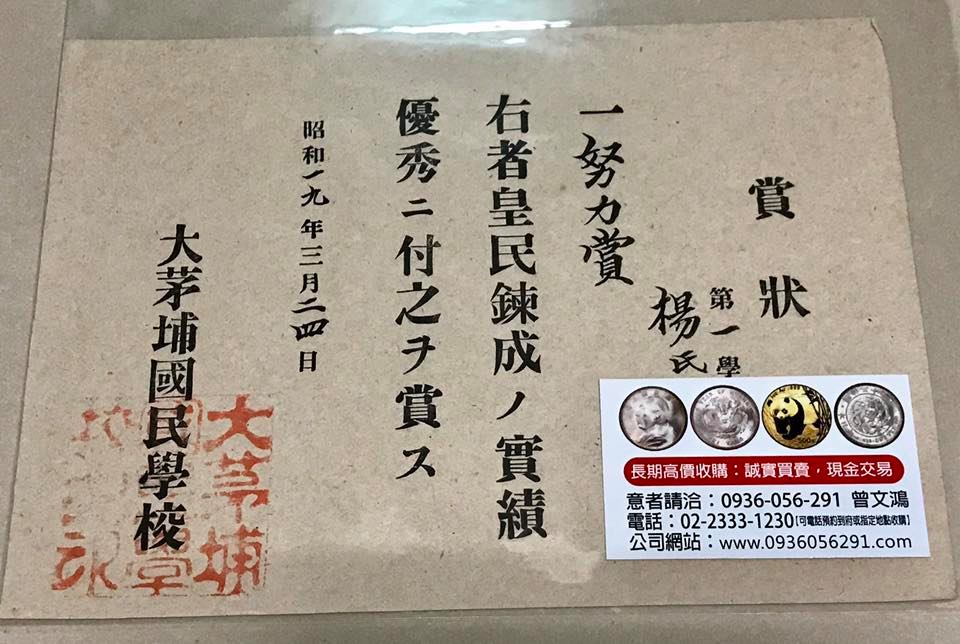 賞狀
第一學
楊氏
一努力賞
右者皇民鍊成ノ實績
優秀ニ付之ヲ賞ス
昭和一九年三月二四日
大茅埔國民學校
大茅埔
長期高價收購：誠實買賣，現金交易
意者請洽：0936-056-291 曾文鴻
電話：02-2333-1230【可電話預約到府或指定地點收購】
公司網站：www.0936056291.com